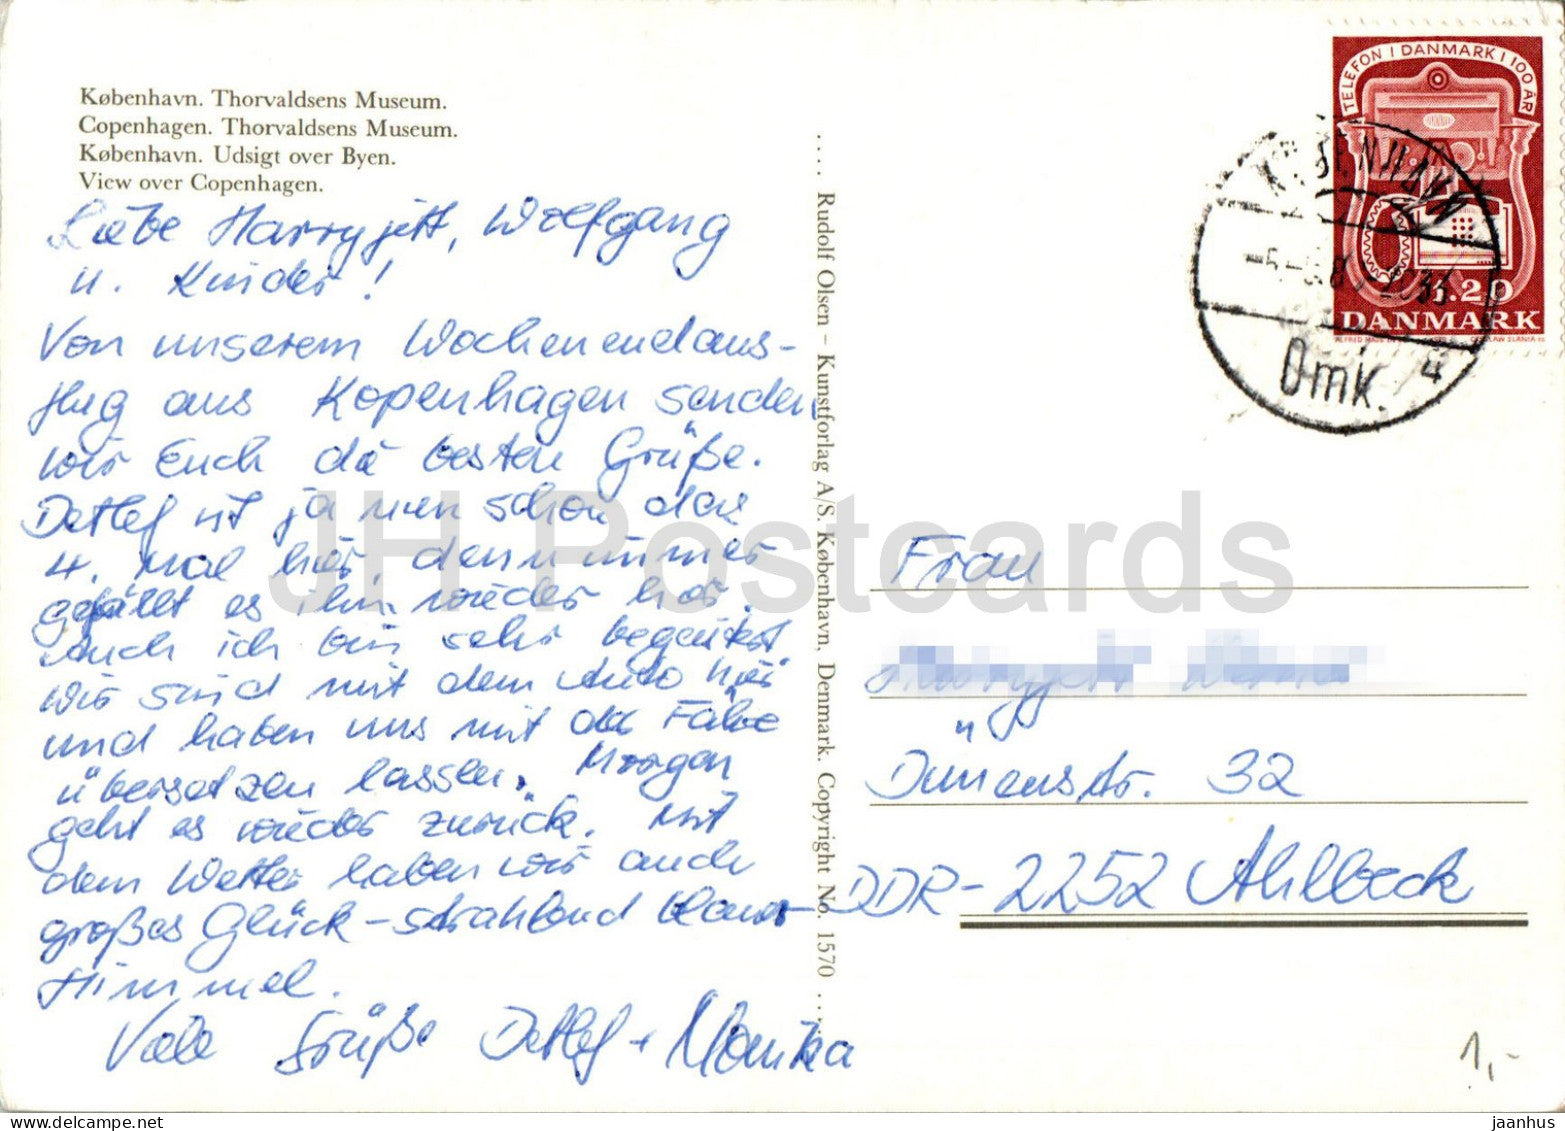 København. Thorvaldsens Museum.
Copenhagen. Thorvaldsens Museum.
København. Udsigt over Byen.
View over Copenhagen.
Liebe Harryjett, Wolfgang
u. Kinder!
Von unserem Wochenendaus-
flug aus Kopenhagen senden
wir Euch die besten Grüße.
Detlef ist ja nun schon das
4. Mal hier, denn immer
gefällt es ihm wieder hier.
Auch ich bin sehr begeistert
Wir sind mit dem Auto hier
und haben uns mit der Fähre
übersetzen lassen. Morgen
geht es wieder zurück. Mit
dem Wetter haben wir auch
großes Glück - strahlend blauer
Himmel.
Viele Grüße Detlef + Monika
.... Rudolf Olsen - Kunstforlag A/S. København, Denmark. Copyright No. 1570 ....
TELEFON I DANMARK I 100 ÅR
1.20
DANMARK
KØBENHAVN
Omk.
4
Frau
Dünenstr. 32
DDR-2252 Ahlbeck
1,-
JH Postcards
jaanhus